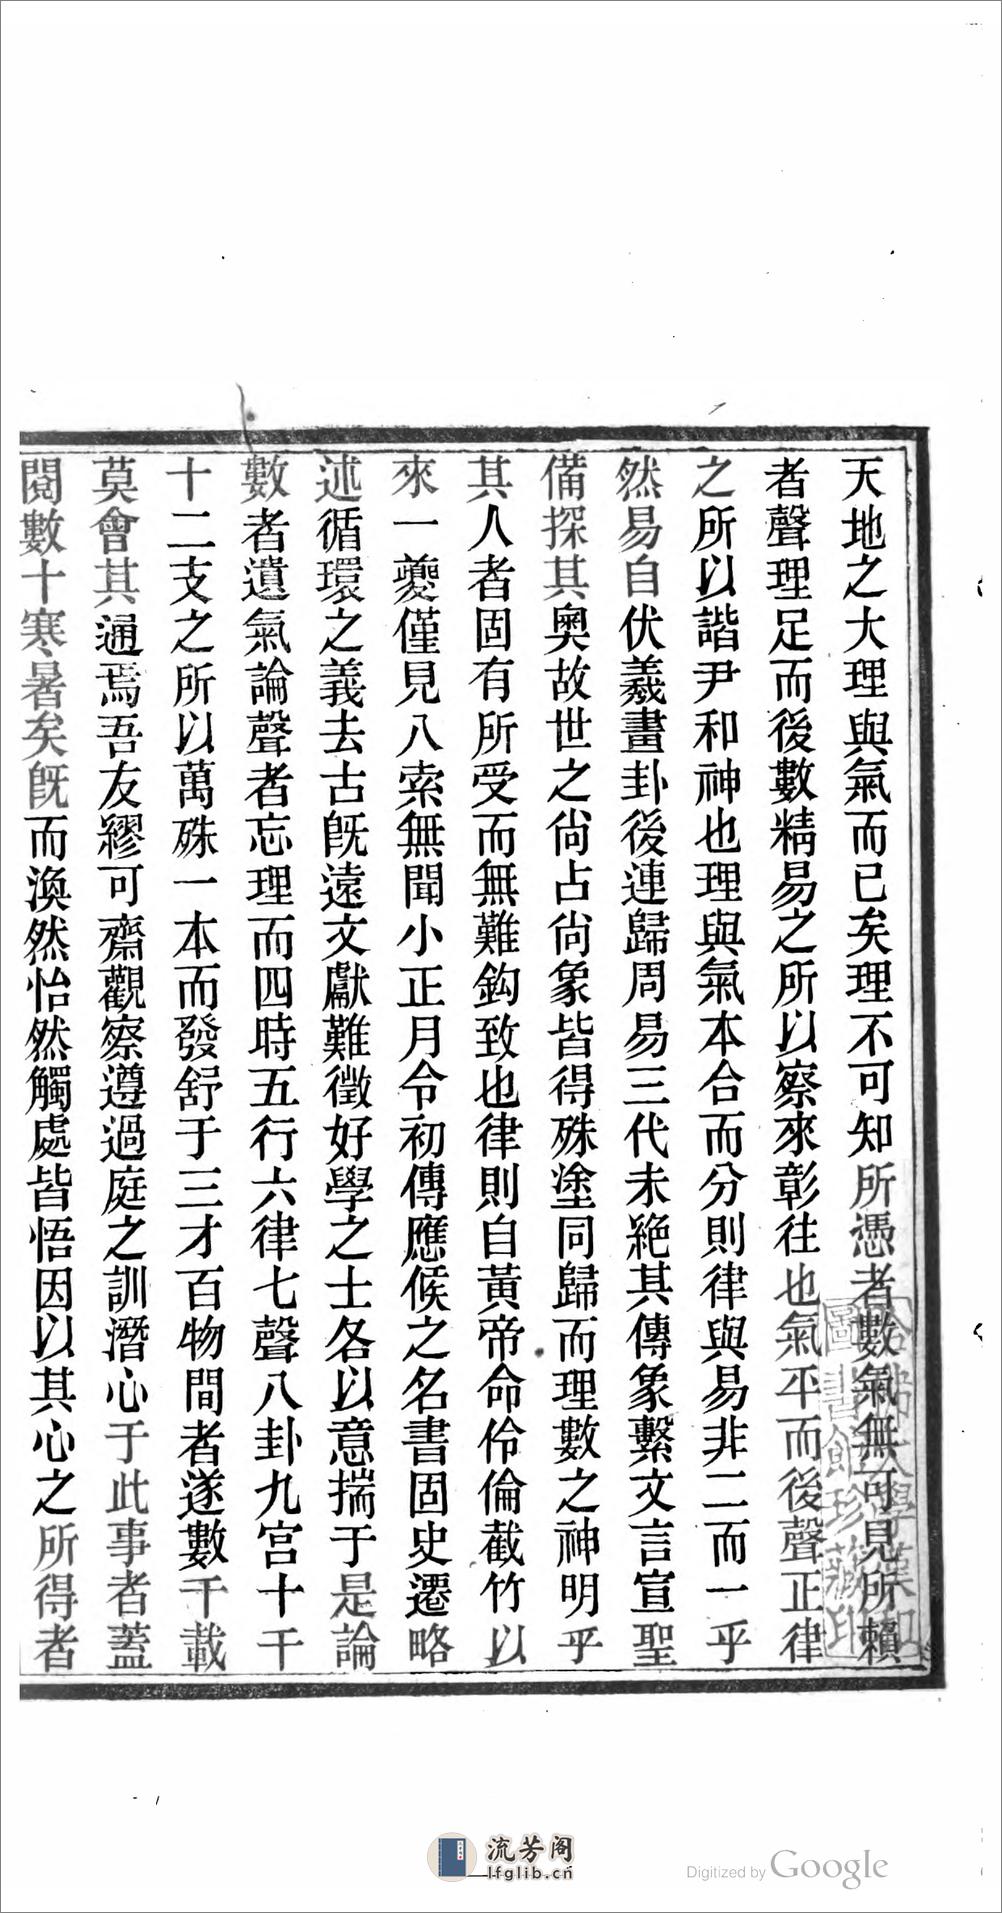 天地之大理與氣而已矣理不可知所憑者數氣無可見所賴
者聲理足而後數精易之所以察來彰往也氣平而後聲正律
之所以諧尹和神也理與氣本合而分則律與易非二而一乎
然易自伏羲畫卦後連歸周易三代未絕其傳象繫文言宣聖
備探其奧故世之尙占尙象皆得殊塗同歸而理數之神明乎
其人者固有所受而無難鈎致也律則自黃帝命伶倫截竹以
來一夔僅見八索無聞小正月令初傳應候之名書固史遷略
述循環之義去古旣遠文獻難徵好學之士各以意揣于是論
數者遺氣論聲者忘理而四時五行六律七聲八卦九宮十干
十二支之所以萬殊一本而發舒于三才百物間者遂數千載
莫會其通焉吾友繆可齋觀察遵過庭之訓潛心于此事者蓋
閱數十寒暑矣旣而渙然怡然觸處皆悟因以其心之所得者
哈佛大學漢和
圖書館珍藏印
流芳阁
lfglib.cn
Digitized by Google